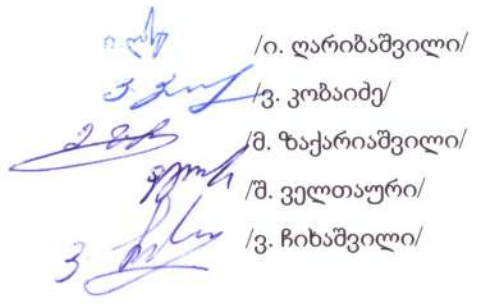 /ი. ღარიბაშვილი/
/ვ. კობაიძე/
/მ. ზაქარიაშვილი/
/შ. ველთაური/
/ვ. ჩიხაშვილი/